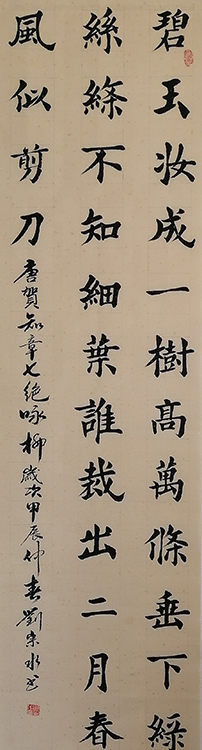 碧玉妆成一樹高萬條垂下綠
絲絛不知細葉誰裁出二月春
風似剪刀
唐賀知章七絕咏柳歲次甲辰仲春劉宗水书